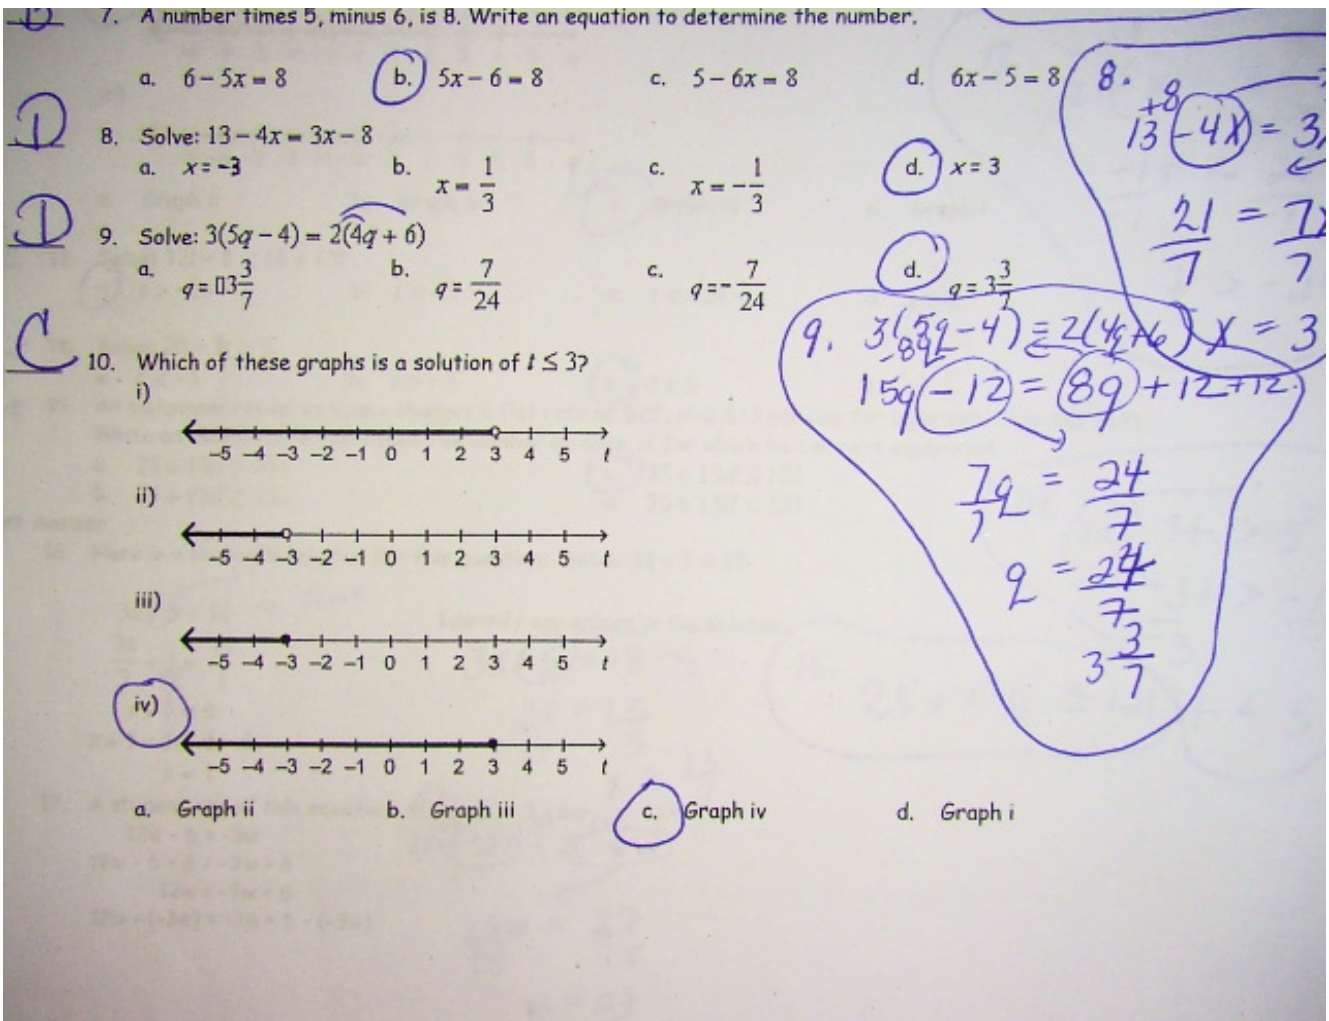 7. A number times 5, minus 6, is 8. Write an equation to determine the number.
a. 6 – 5x = 8 b. 5x – 6 = 8 c. 5 – 6x = 8 d. 6x – 5 = 8
D 8. Solve: 13 – 4x = 3x – 8
a. x = –3 b. x = 1/3 c. x = –1/3 d. x = 3
D 9. Solve: 3(5q – 4) = 2(4q + 6)
a. q = 3 3/7 b. q = 7/24 c. q = –7/24 d. q = 3 3/7
C 10. Which of these graphs is a solution of t ≤ 3?
i)
–5 –4 –3 –2 –1 0 1 2 3 4 5 t
ii)
–5 –4 –3 –2 –1 0 1 2 3 4 5 t
iii)
–5 –4 –3 –2 –1 0 1 2 3 4 5 t
iv)
–5 –4 –3 –2 –1 0 1 2 3 4 5 t
a. Graph ii b. Graph iii c. Graph iv d. Graph i
8.
+8
13 – 4x = 3
21/7 = 7x/7
x = 3
9. 3(5q – 4) = 2(4q + 6)
–8q
15q – 12 = 8q + 12 + 12
7q/7 = 24/7
q = 24/7
3 3/7